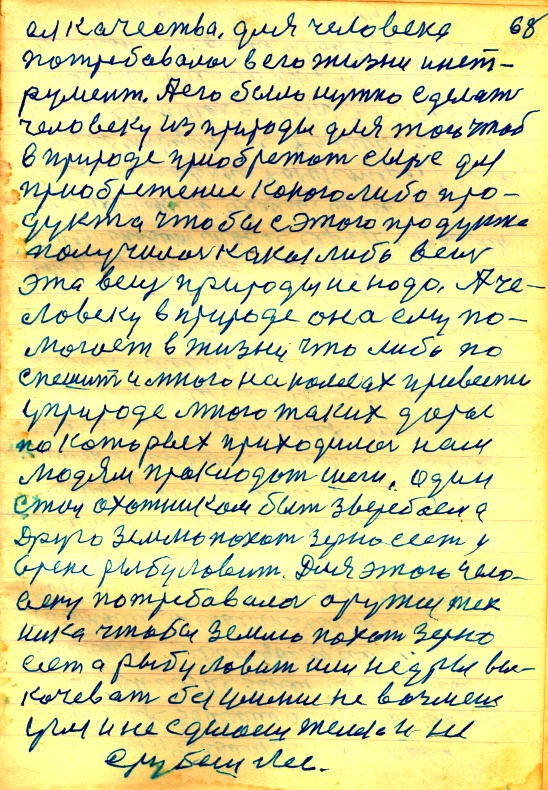 68
ел качества, для человека
потребовалос в его жизни инст-
румент. А его было нужно сделат
человеку из природы для того чтоб
в природе приобретат сырье для
приобретение какого либо про-
дукта чтобы с этого продукта
получилос какая либо вещ
эта вещ природы не надо. А че-
ловеку в природе она ему по-
могает в жизни что либо по
спешит и много на колесах привести
у природе много таких дорог
по которых приходилос нам
людям проклодат шаги. один
стал охотником быт зверобоем а
друго землю похат зерно сеет у
рыбу ловит. Для этого чело-
веку потребовалос оружие тех
ника чтобы землю похат зерно
сеет а рыбу ловит или недры вы-
качеват без умение не возмеш
и не сделаеш железо и не
срубаеш лес.